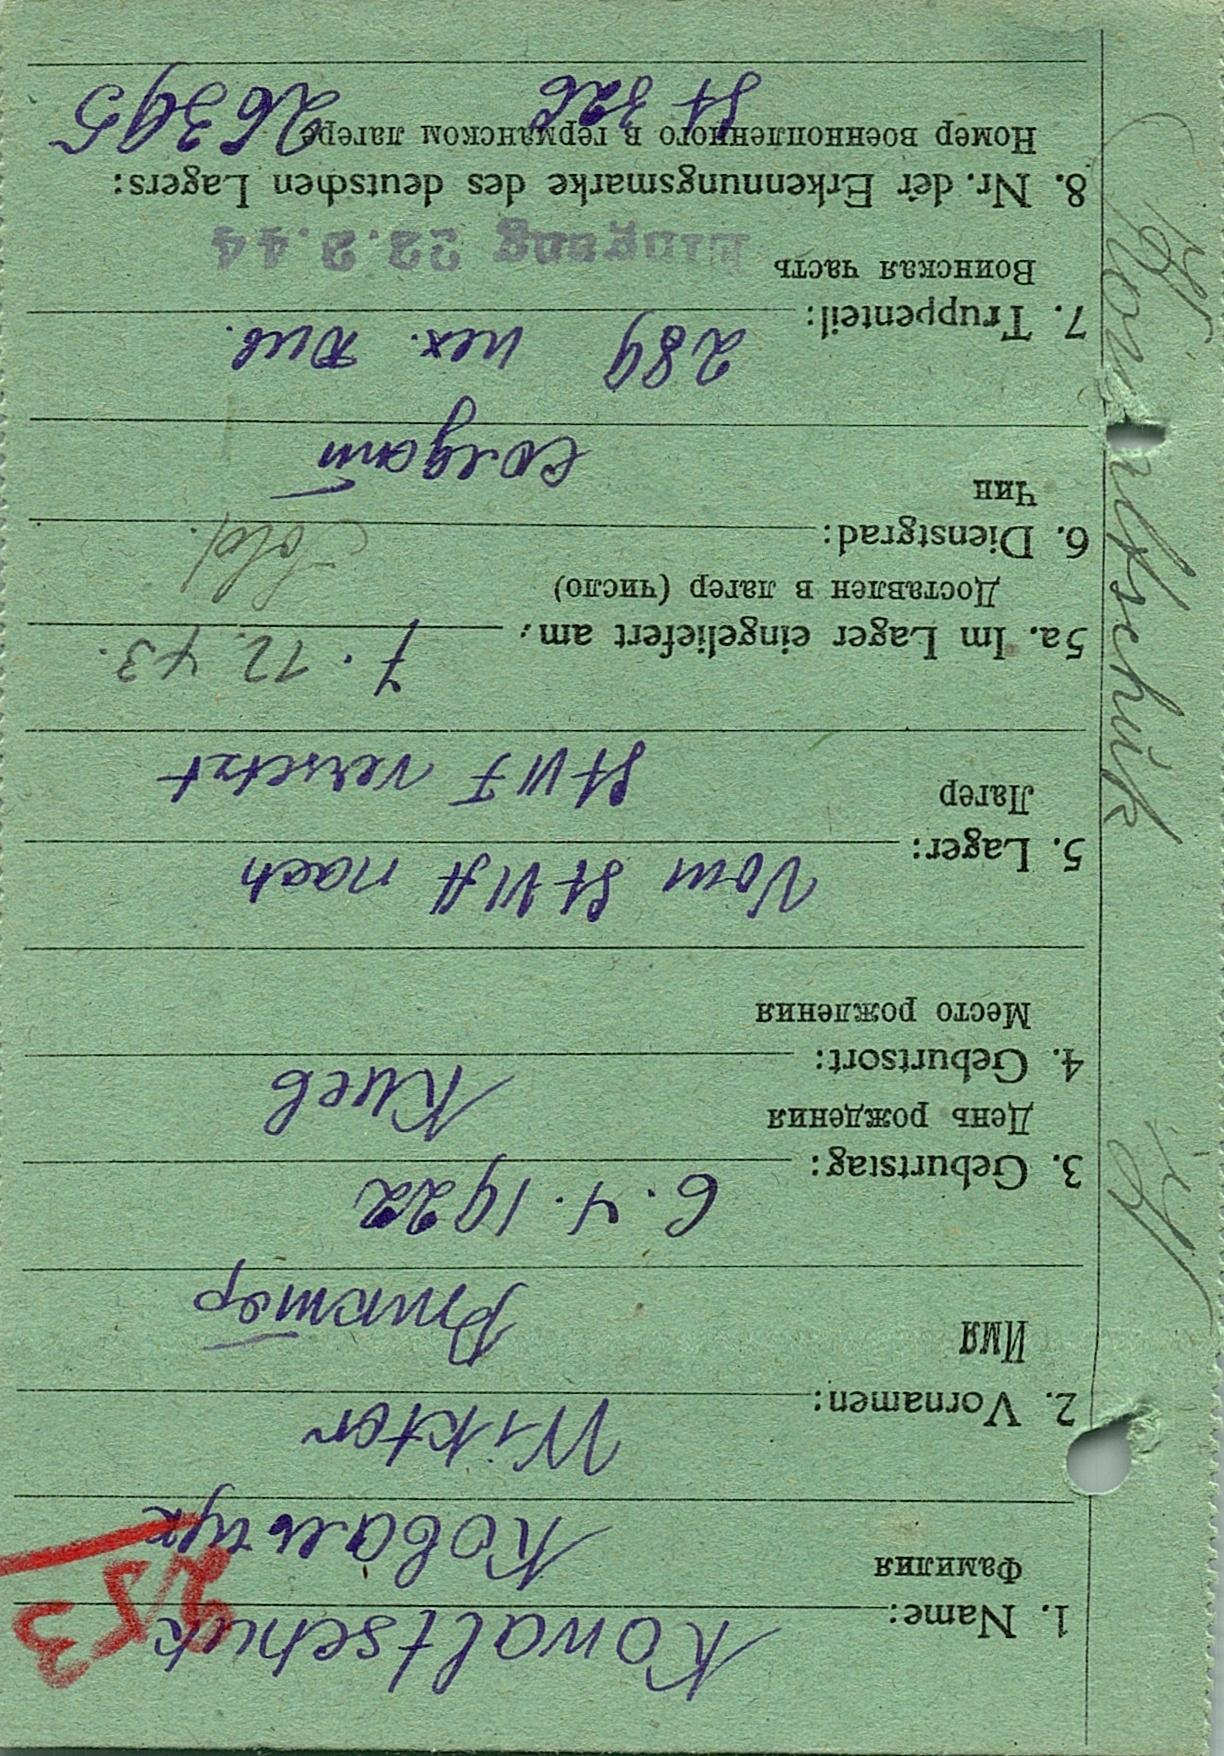 253
1. Name: Kowaltschuk
Фамилия Ковальчук
2. Vornamen: Wiktor
Имя Виктор
3. Geburtstag: 6.4.1922
День рождения
4. Geburtsort: Киев
Место рождения
5. Lager: Vom St VI A nach
Лагер St VI F versetzt
5a. Im Lager eingeliefert am: 7.12.43.
Доставлен в лагер (число)
6. Dienstgrad: Sold.
Чин Солдат
7. Truppenteil: 289 пех. див.
Воинская часть
Eingang 22.2.44
8. Nr. der Erkennungsmarke des deutschen Lagers:
Номер военнопленного в германском лагере 26395
St 326
Kowaltschuk